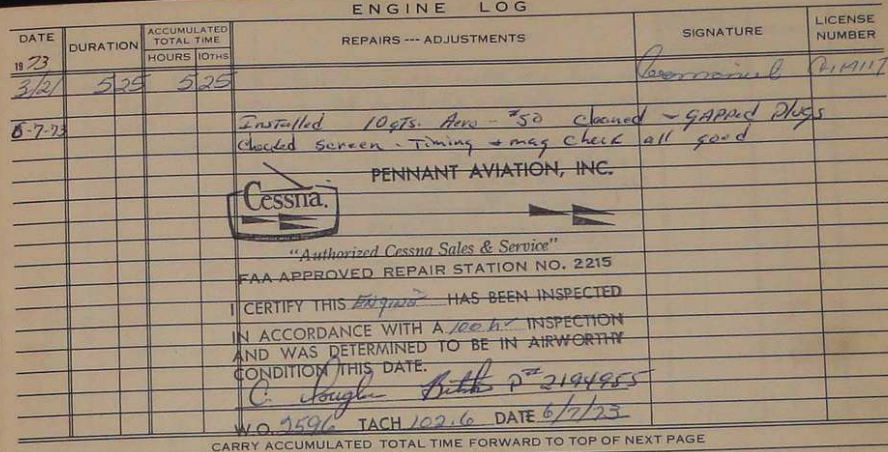 ENGINE LOG
DATE DURATION ACCUMULATED TOTAL TIME REPAIRS --- ADJUSTMENTS SIGNATURE LICENSE NUMBER
1973 HOURS 10THS
3/21 5 25 5 25
6-7-73 Installed 10 qts. Aero - #50 cleaned - GAPPed Plugs
Checked screen - Timing + mag check all good
PENNANT AVIATION, INC.
Cessna.
"Authorized Cessna Sales & Service"
FAA APPROVED REPAIR STATION NO. 2215
I CERTIFY THIS Engine HAS BEEN INSPECTED
IN ACCORDANCE WITH A 100 hr INSPECTION
AND WAS DETERMINED TO BE IN AIRWORTHY
CONDITION THIS DATE.
C. P# 2194955
W.O. 2596 TACH 102.6 DATE 6/7/73
CARRY ACCUMULATED TOTAL TIME FORWARD TO TOP OF NEXT PAGE